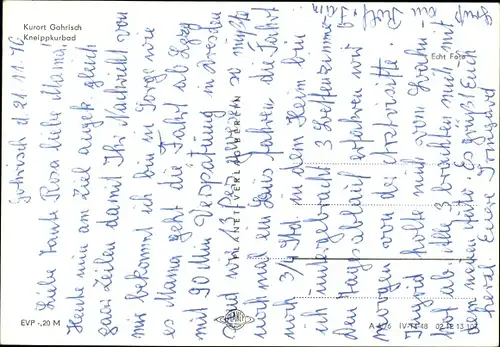 Kurort Gohrisch
Kneippkurbad
Echt Foto
Gohrisch d 21.11.76
Liebe Tante Rosa liebe Mama!
Heute nun am Ziel angek. gleich
paar Zeilen damit Ihr Nachricht von
mir bekommt ich bin in Sorge wie
es Mama geht die Fahrt ab Lpzg
mit 90 Min Verspätung in Dresden
und wir 13 Pers. waren so mußte
noch mal ein Bus fahren die Fahrt
noch 3/4 Std. in dem Heim bin
ich untergebracht 3 Bettenzimmer
den Tagesablauf erfahren wir
morgen von der Ärztevisite.
Ingrid holte mich vom Bahn-
hof ab. Alle 3 brachten mich mit
dem neuen Auto. Es grüßt Euch
herzl. Eure Irmgard
Gruß
an Rolf + Fam.
PLANET-VERLAG BERLIN
PLANET
EVP -,20 M
A 4/76 IV-14-48 02 12 13 102